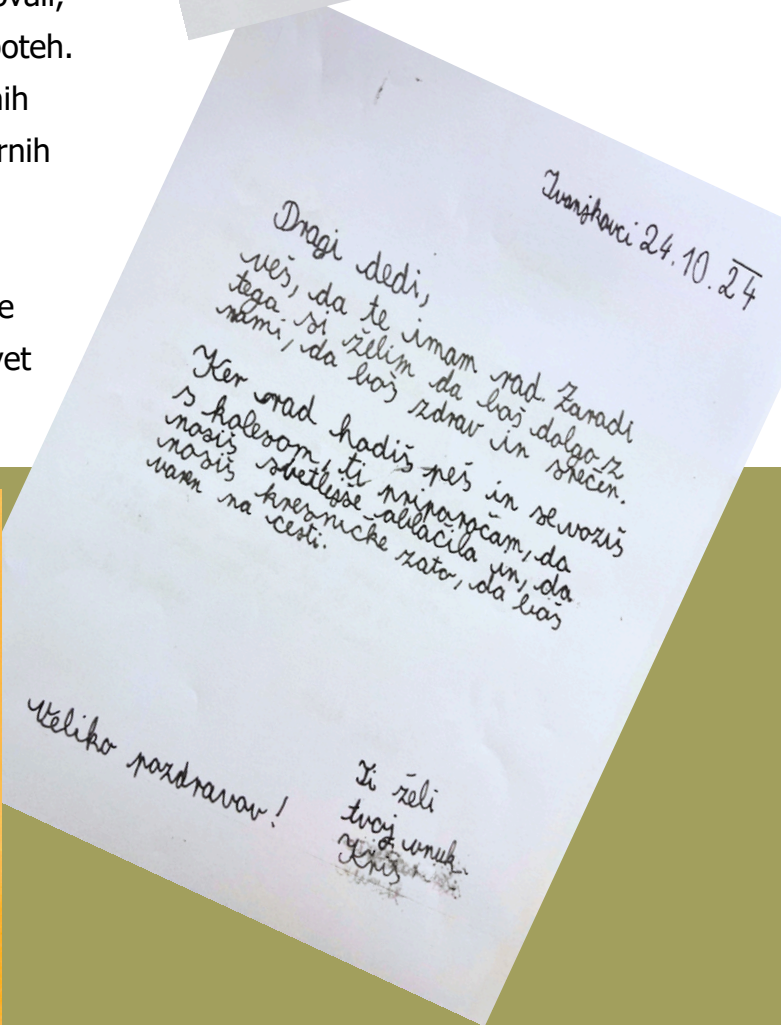 ovali,
poteh.
nih
rnih
e
vet
Ivanjkovci 24.10.24
Dragi dedi,
veš, da te imam rad. Zaradi
tega si želim da boš dolgo z
nami, da boš zdrav in srečen.
Ker rad hodiš peš in se voziš
s kolesom, ti priporočam, da
nosiš svetlejše oblačila in, da
nosiš kresničke zato, da boš
varen na
cesti.
Veliko pozdravov!
Ti želi
tvoj vnuk.
Kris